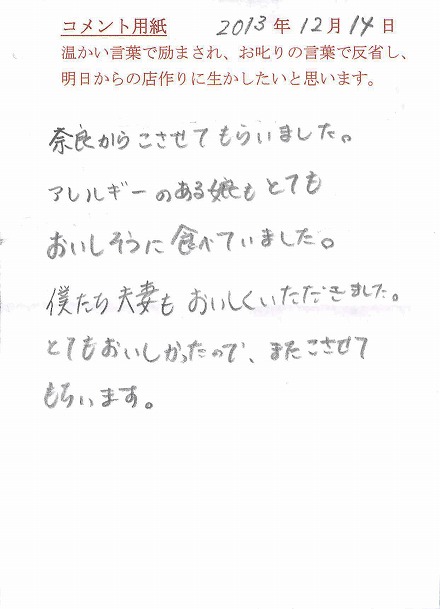 コメント用紙 2013年12月14日
温かい言葉で励まされ、お叱りの言葉で反省し、
明日からの店作りに生かしたいと思います。
奈良からこさせてもらいました。
アレルギーのある娘もとても
おいしそうに食べていました。
僕たち夫妻もおいしくいただきました。
とてもおいしかったので、またこさせて
もらいます。